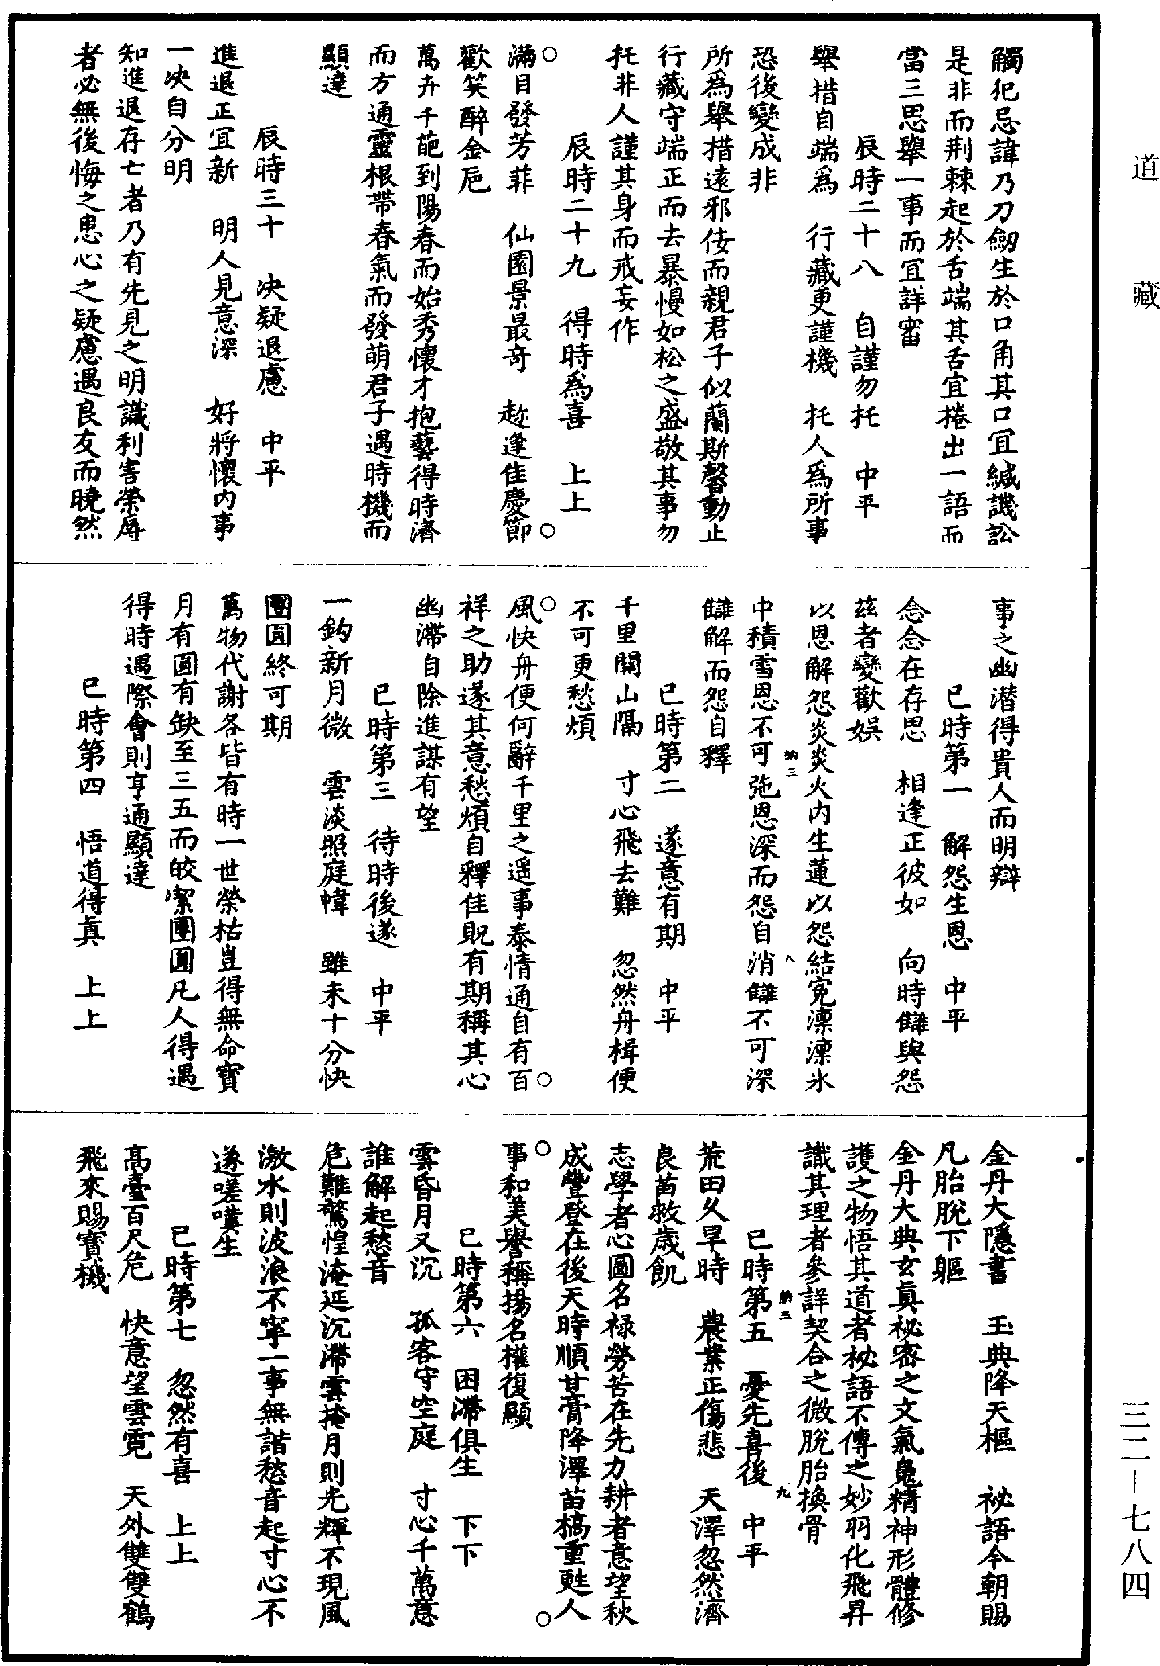 道藏
觸犯忌諱乃刀劔生於口角其口冝緘譏訟
是非而荆棘起於舌端其舌宜捲出一語而
當三思舉一事而冝詳審
辰時二十八　自謹勿托　中平
舉措自端爲　行藏更謹機　托人爲所事
恐後變成非
所爲舉措遠邪佞而親君子似蘭斯馨動止
行藏守端正而去暴慢如松之盛敬其事勿
托非人謹其身而戒妄作
辰時二十九　得時爲喜　上上
滿目發芳菲　仙園景最竒　趂逢佳慶節
歡笑醉金巵
萬卉千葩到陽春而始秀懷才抱藝得時濟
而方通靈根帶春氣而發萌君子遇時機而
顯達
辰時三十　决疑退慮　中平
進退正宜新　明人見意深　好將懷内事
一决自分明
知進退存亡者乃有先見之明識利害榮辱
者必無後悔之患心之疑慮遇良友而曉然
事之幽潛得貴人而明辯
巳時第一　解怨生恩　中平
念念在存思　相逢正彼如　向時讎與怨
茲者變歡娛
以恩解怨炎炎火内生蓮以怨結寃凛凛氷
中積雪恩不可弛恩深而怨自消讎不可深
讎解而怨自釋
巳時第二　遂意有期　中平
千里關山隔　寸心飛去難　忽然舟楫便
不可更愁煩
風快舟便何辭千里之遥事泰情通自有百
祥之助遂其意愁煩自釋佳貺有期稱其心
幽滯自除進謀有望
巳時第三　待時後遂　中平
一鈎新月微　雲淡照庭幃　雖未十分快
團圓終可期
萬物代謝各皆有時一世榮枯豈得無命寳
月有圓有缺至三五而皎潔團圓凡人得遇
得時遇際會則亨通顯達
巳時第四　悟道得眞　上上
金丹大隱書　玉典降天樞　祕語今朝賜
凡胎脫下軀
金丹大典玄眞祕密之文氣䰟精神形體修
護之物悟其道者祕語不傳之妙羽化飛昇
識其理者參詳契合之微脫胎換骨
巳時第五　憂先喜後　中平
荒田久旱時　農業正傷悲　天澤忽然濟
良苗救歲飢
志學者心圖名禄勞苦在先力耕者意望秋
成豐登在後天時順甘膏降澤苗槁重甦人
事和美譽稱揚名權復顯
巳時第六　困滯俱生　下下
雲昏月又沉　孤客守空庭　寸心千萬意
誰解起愁音
危難驚惶淹延沉滯雲掩月則光輝不現風
激水則波浪不寧一事無諧愁音起寸心不
遂嗟嘆生
巳時第七　忽然有喜　上上
髙臺百尺危　快意望雲霓　天外雙雙鶴
飛來賜寳機
三二—七八四